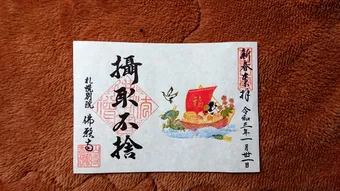 新春奉拝
令和三年一月廿一日
福
攝取不捨
札幌別院
佛願寺